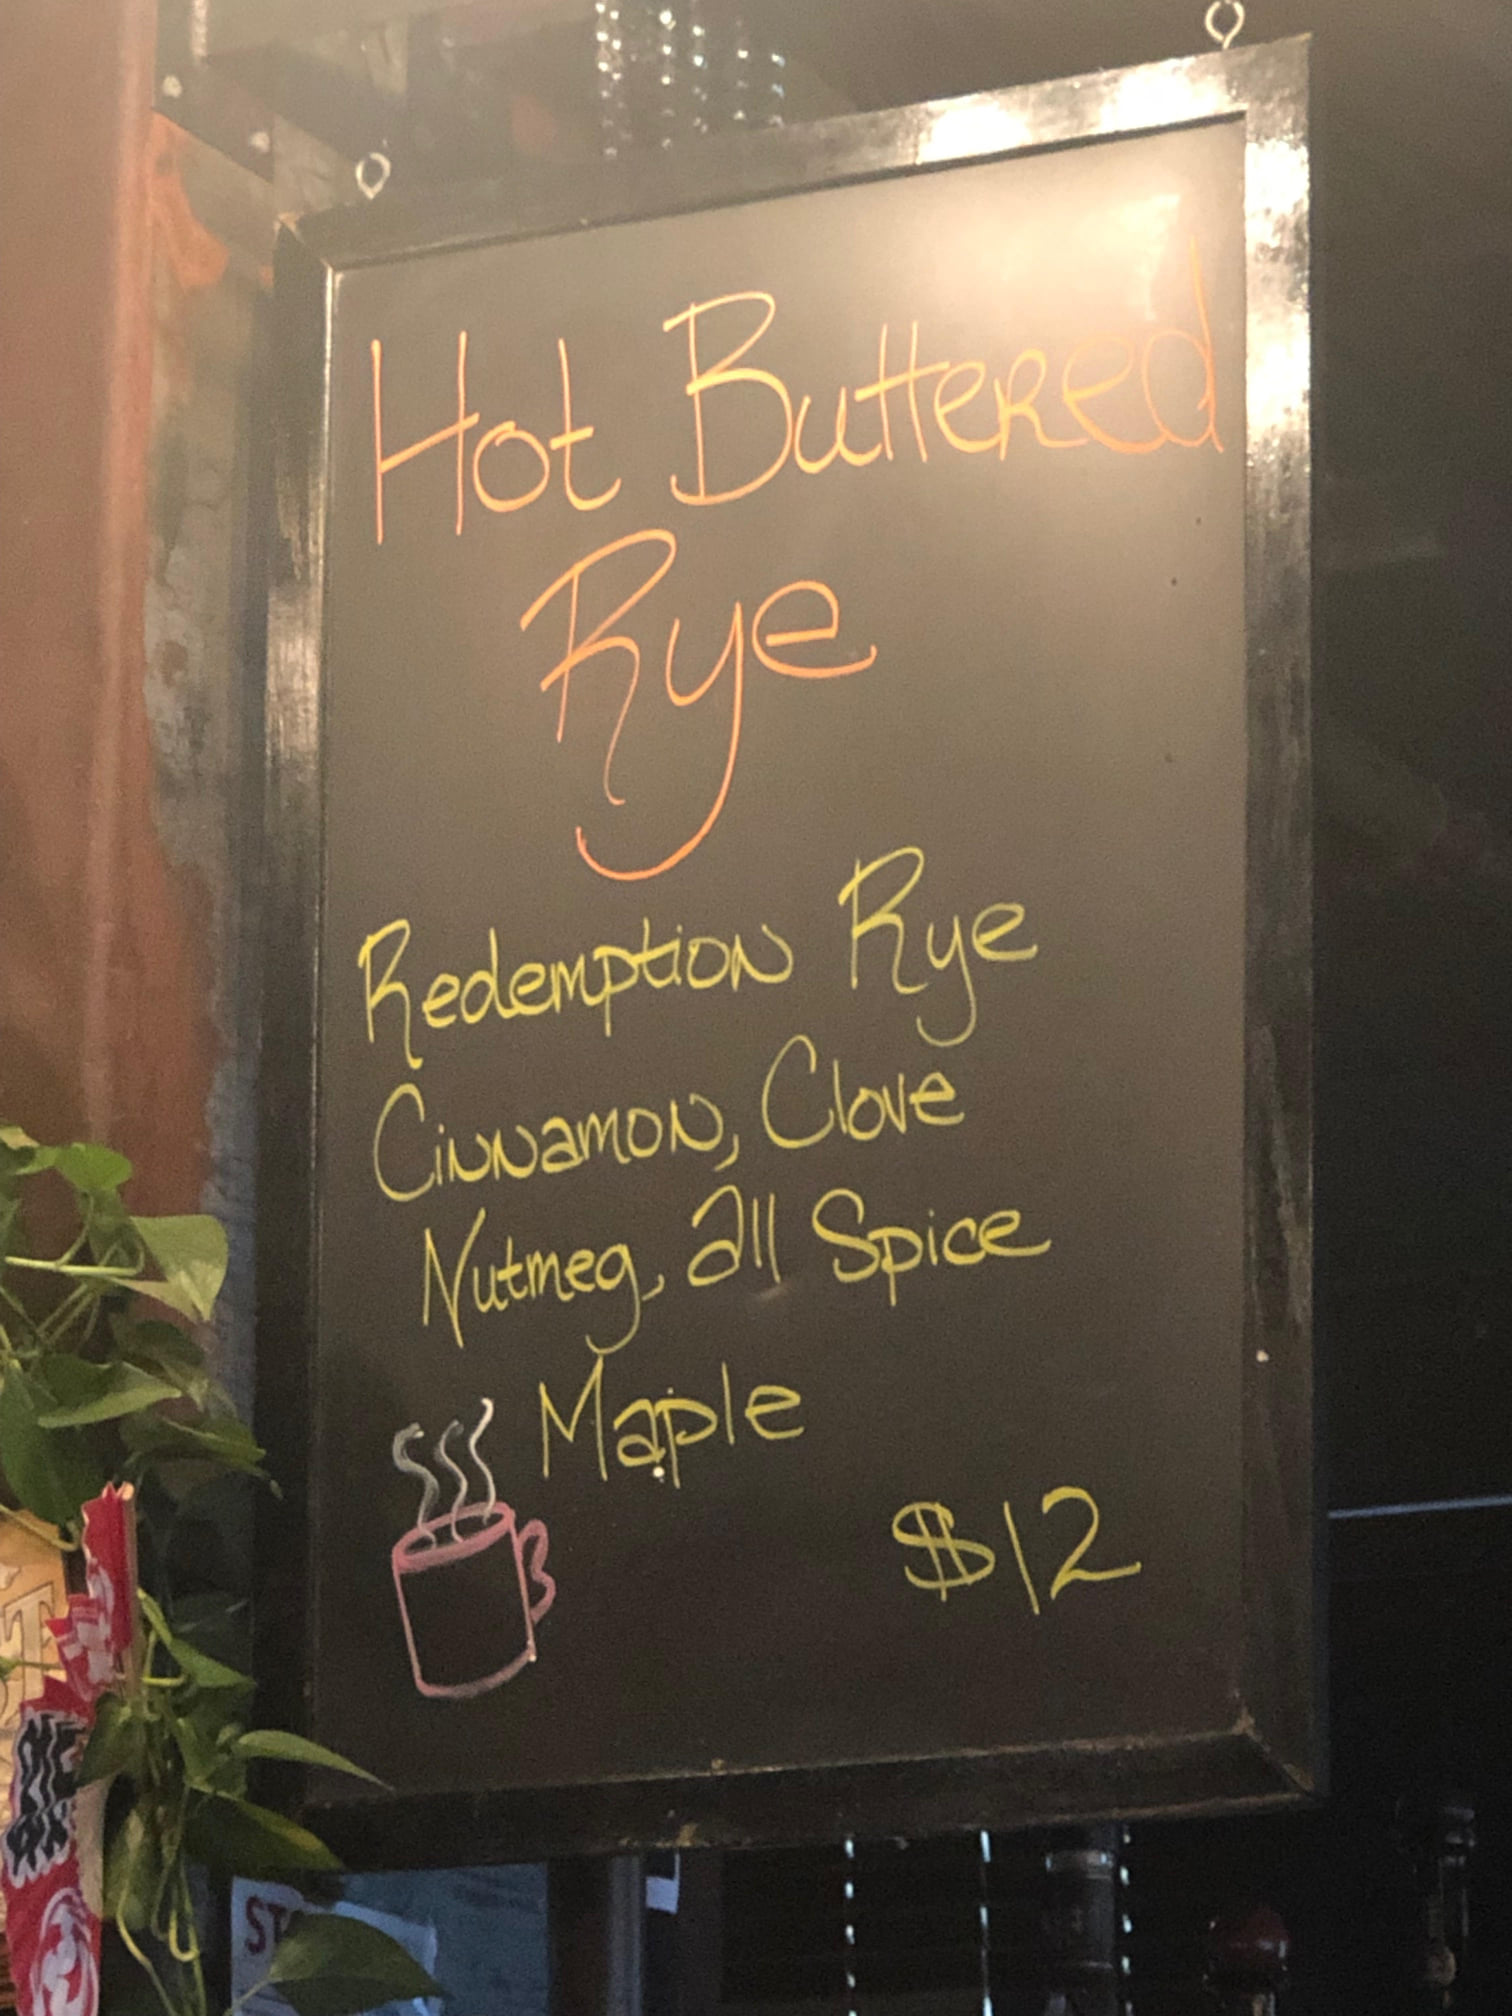 Hot Buttered
Rye
Redemption Rye
Cinnamon, Clove
Nutmeg, all Spice
Maple
$12